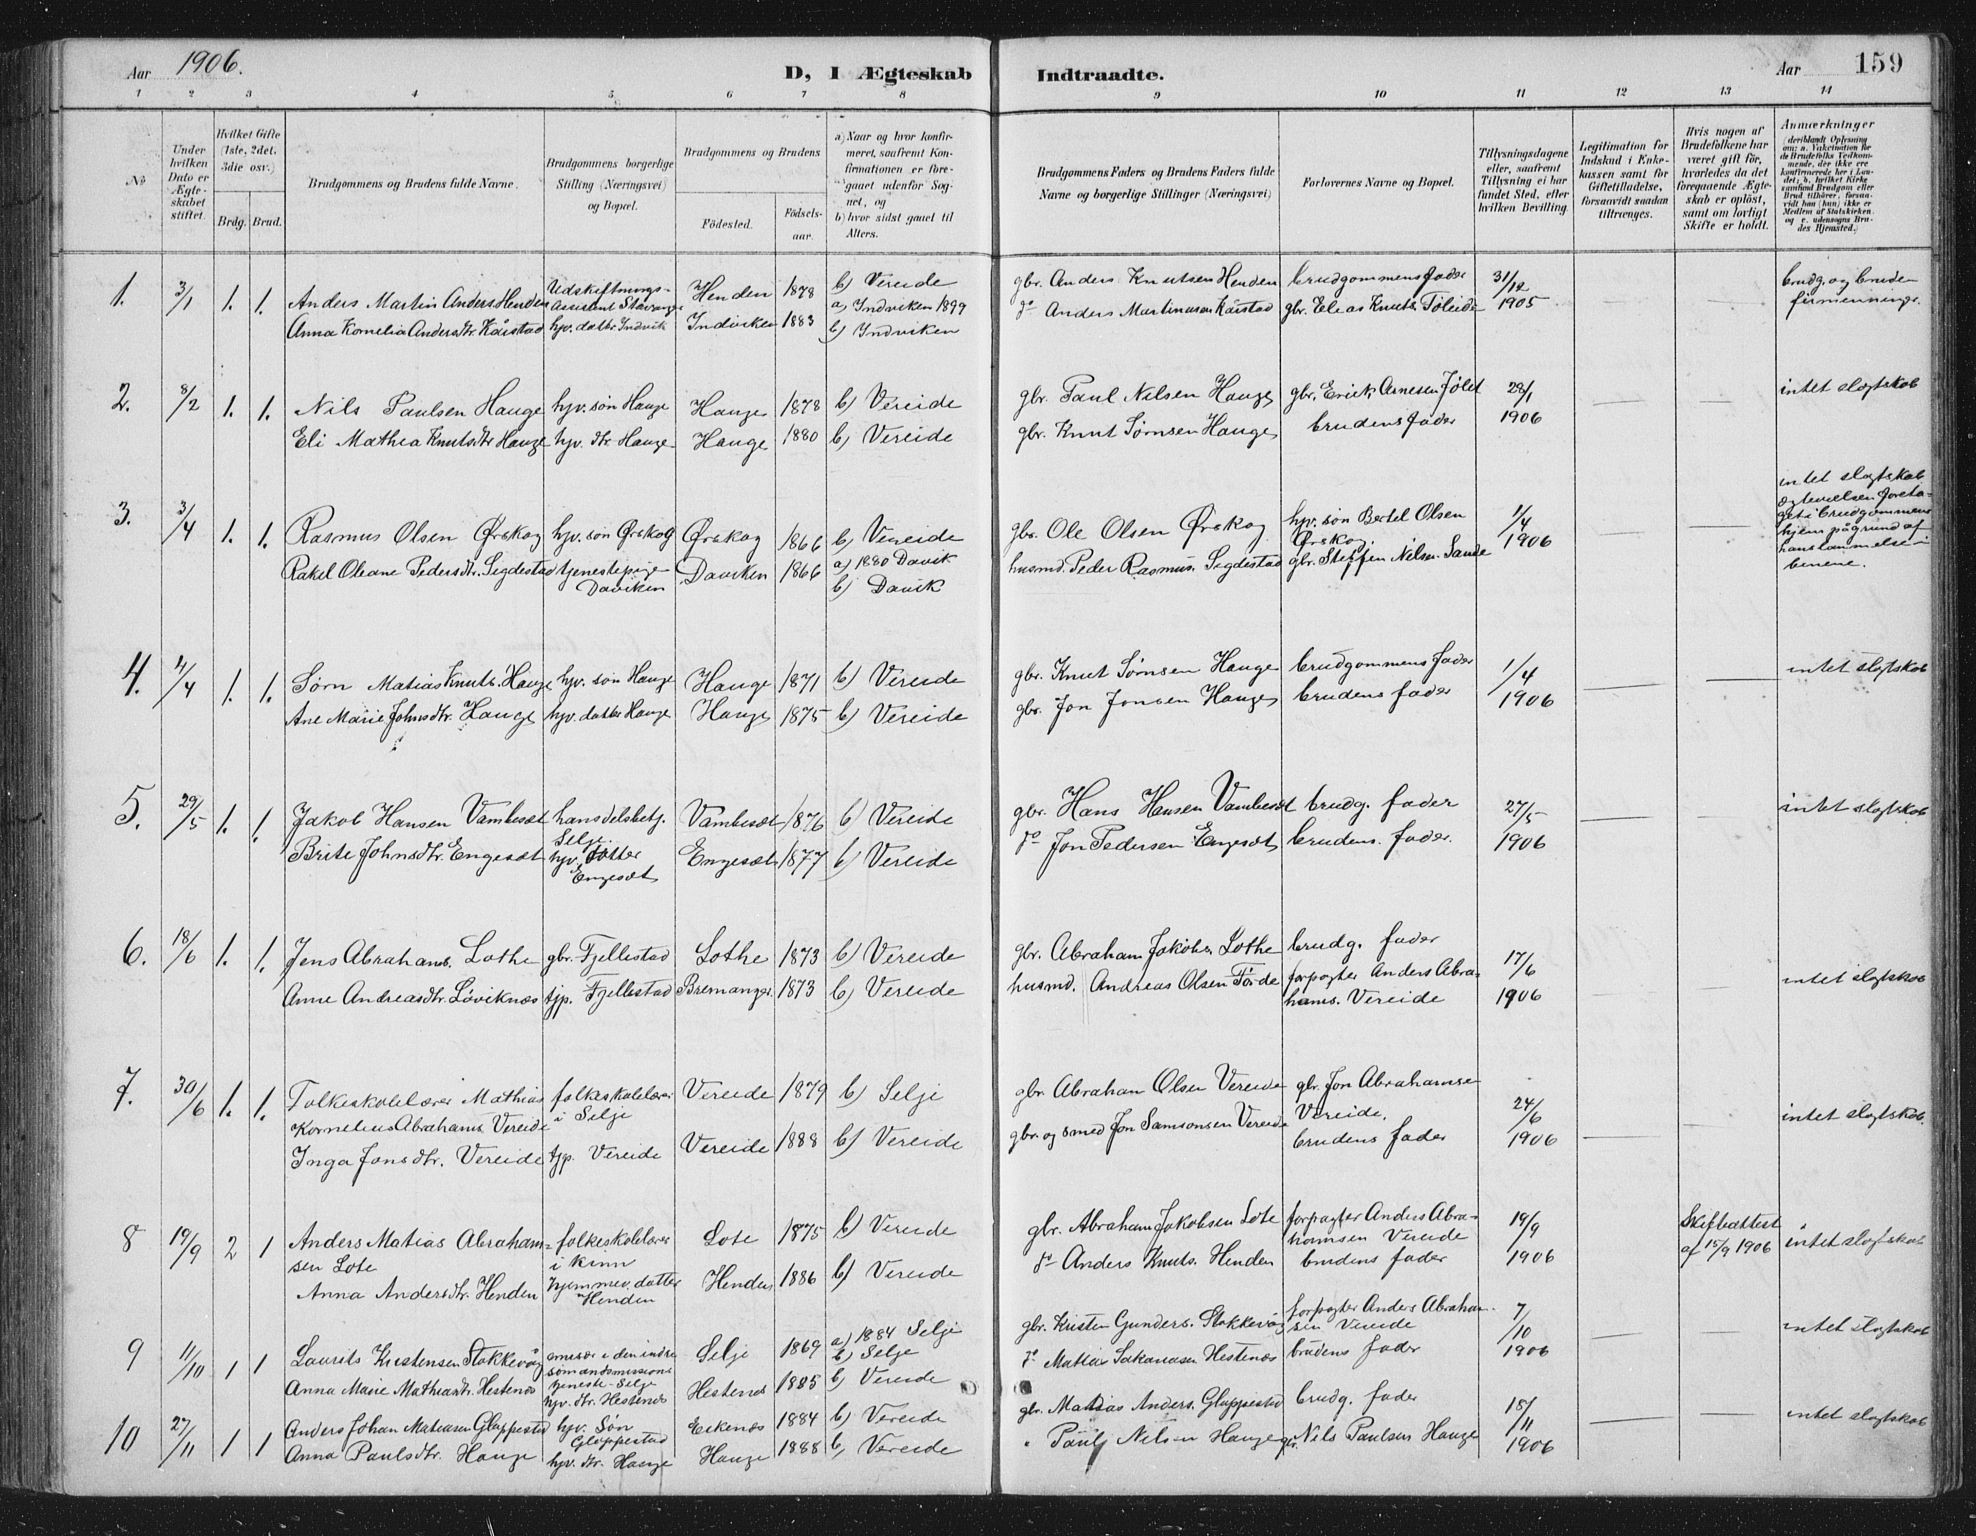 Aar 1906.
D, I Ægteskab Indtraadte.
Aar 159
1 2 3 4 5 6 7 8 9 10 11 12 13 14
No
Under hvilken Dato er Ægteskabet stiftet.
Hvilket Gifte (1ste, 2det, 3die osv.)
Brdg. Brud.
Brudgommens og Brudens fulde Navne.
Brudgommens borgerlige Stilling (Næringsvei) og Bopæl.
Brudgommens og Brudens
Födested.
Födsels-aar.
a) Naar og hvor konfirmeret, saafremt Konfirmationen er foregaaet udenfor Sognet, og
b) hvor sidst gaaet til Alters.
Brudgommens Faders og Brudens Faders fulde Navne og borgerlige Stillinger (Næringsvei)
Forlovernes Navne og Bopæl.
Tillysningsdagene eller, saafremt Tillysning ei har fundet Sted, efter hvilken Bevilling
Legitimation for Indskud i Enkekassen samt for Giftetilladelse, forsaavidt saadan tiltrænges.
Hvis nogen af Brudefolkene har været gift för, hvorledes da det foregaaende Ægteskab er oplöst, samt om lovligt Skifte er holdt.
Anmærkninger
1. 3/1 1. 1. Anders Martin Anders Henden Udskiftnings-Assistent Stavanger Henden 1878 b) Vereide gbr. Anders Knutsen Henden brudgommens fader 31/12 1905 brudg. og bruden firmenninge.
Anna Kornelia Andersdtr. Kårstad hjv. datter Indvik Indviken 1883 a) Indviken 1899 b) Indviken do Anders Martinusen Kårstad gbr. Elias Knuts. Töleide
2. 8/2 1. 1. Nils Paulsen Hauge hjv. søn Hauge Hauge 1878 b) Vereide gbr. Paul Nilsen Hauge gbr. Erik Arnesen 28/1 1906 intet slegtskab
Eli Mathea Knutsdtr Hauge hjv. dtr. Hauge Hauge 1880 b) Vereide gbr. Knut Sørnsen Hauge brudens fader
3. 3/4 1. 1. Rasmus Olsen Ørskog hjv. søn Ørskog Ørskog 1866 b) Vereide gbr. Ole Olsen Ørskog hjv. søn Bertel Olsen Ørskog. 1/4 1906 intet slegtskab ægtevielsen foretaget i brudgommens hjem på grund af hans lammelse i benene.
Rakel Oleane Pedersdtr. Segdestad tjenestepige Daviken Daviken 1866 a) 1880 Davik b) Davik husmd. Peder Rasmus. Segdestad gbr. Steffen Nilsen Sande
4. 4/4 1. 1. Sørn Matias Knuts. Hauge hjv. søn Hauge Hauge 1871 b) Vereide gbr. Knut Sørnsen Hauge brudgommens fader 1/4 1906 intet slegtskab
Ane Marie Johnsdtr. Hauge hjv. datter Hauge Hauge 1875 b) Vereide gbr. Jon Jonsen Hauge brudens fader
5. 29/5 1. 1. Jakob Hansen Vambeset handelsbetj. Selje. Vambeset 1876 b) Vereide gbr. Hans Hansen Vambeset brudg. fader 27/5 1906 intet slegtskab
Brite Johnsdtr. Engeset hjv. datter Engeset Engeset 1877 b) Vereide do Jon Pedersen Engeset brudens fader.
6. 18/6 1. 1. Jens Abrahams. Lothe gbr. Fjellestad Lothe 1873 b) Vereide gbr. Abraham Jakobs. Lothe brudg. fader 17/6 1906 intet slegtskab
Anne Andreasdtr. Löviknæs tjp. Fjellestad Bremanger. 1873 b) Vereide husmd. Andreas Olsen Förde forpagter Anders Abrahams. Vereide
7. 30/6 1. 1. Folkeskolelærer Mathias Kornelius Abrahams. Vereide folkeskolelærer i Selje Vereide 1879 b) Selje gbr. Abraham Olsen Vereide gbr. Jon Abrahamse Vereide. 24/6 1906 intet slegtskab.
Inga Jonsdtr. Vereide tjp. Vereide Vereide 1888 b) Vereide gbr. og smed Jon Samsonsen Vereide brudens fader
8 19/9 2 1 Anders Matias Abrahamsen Lote folkeskolelærer i Kinn Lote 1875 b) Vereide gbr. Abraham Jakobsen Lote forpagter Anders Abrahamsen Vereide 19/9 1906 Skifteattest af 15/9 1906 intet slegtskab
Anna Andersdtr. Henden hjemmev. datter Henden Henden 1886 b) Vereide do Anders Knuts. Henden brudens fader
9 11/10 1 1 Laurits Kristensen Stokkevåg i den indre sømandsmissions tjeneste - Selje Selje 1869 a) 1884 Selje b) Selje gbr. Kristen Gunders. Stokkevåg forpagter Anders Abrahamsen Vereide 7/10 1906 intet slegtskab
Anna Marie Mathiasdtr. Hestenæs hjv. dtr. Hestenæs Hestenæs 1885 b) Vereide do Matias Sakariasen Hestenæs brudens fader
10 27/11 1 1 Anders Johan Matiasen Gloppestad hjv. Søn Gloppestad Eikenæs 1884 b) Vereide gbr. Matias Anders. Gloppestad brudg. fader 18/11 1906 intet slegtskab
Anna Paulsdtr. Hauge hjv. dtr. Hauge Hauge 1888 b) Vereide " Paul Nilsen Hauge gbr. Nils Paulsen Hauge